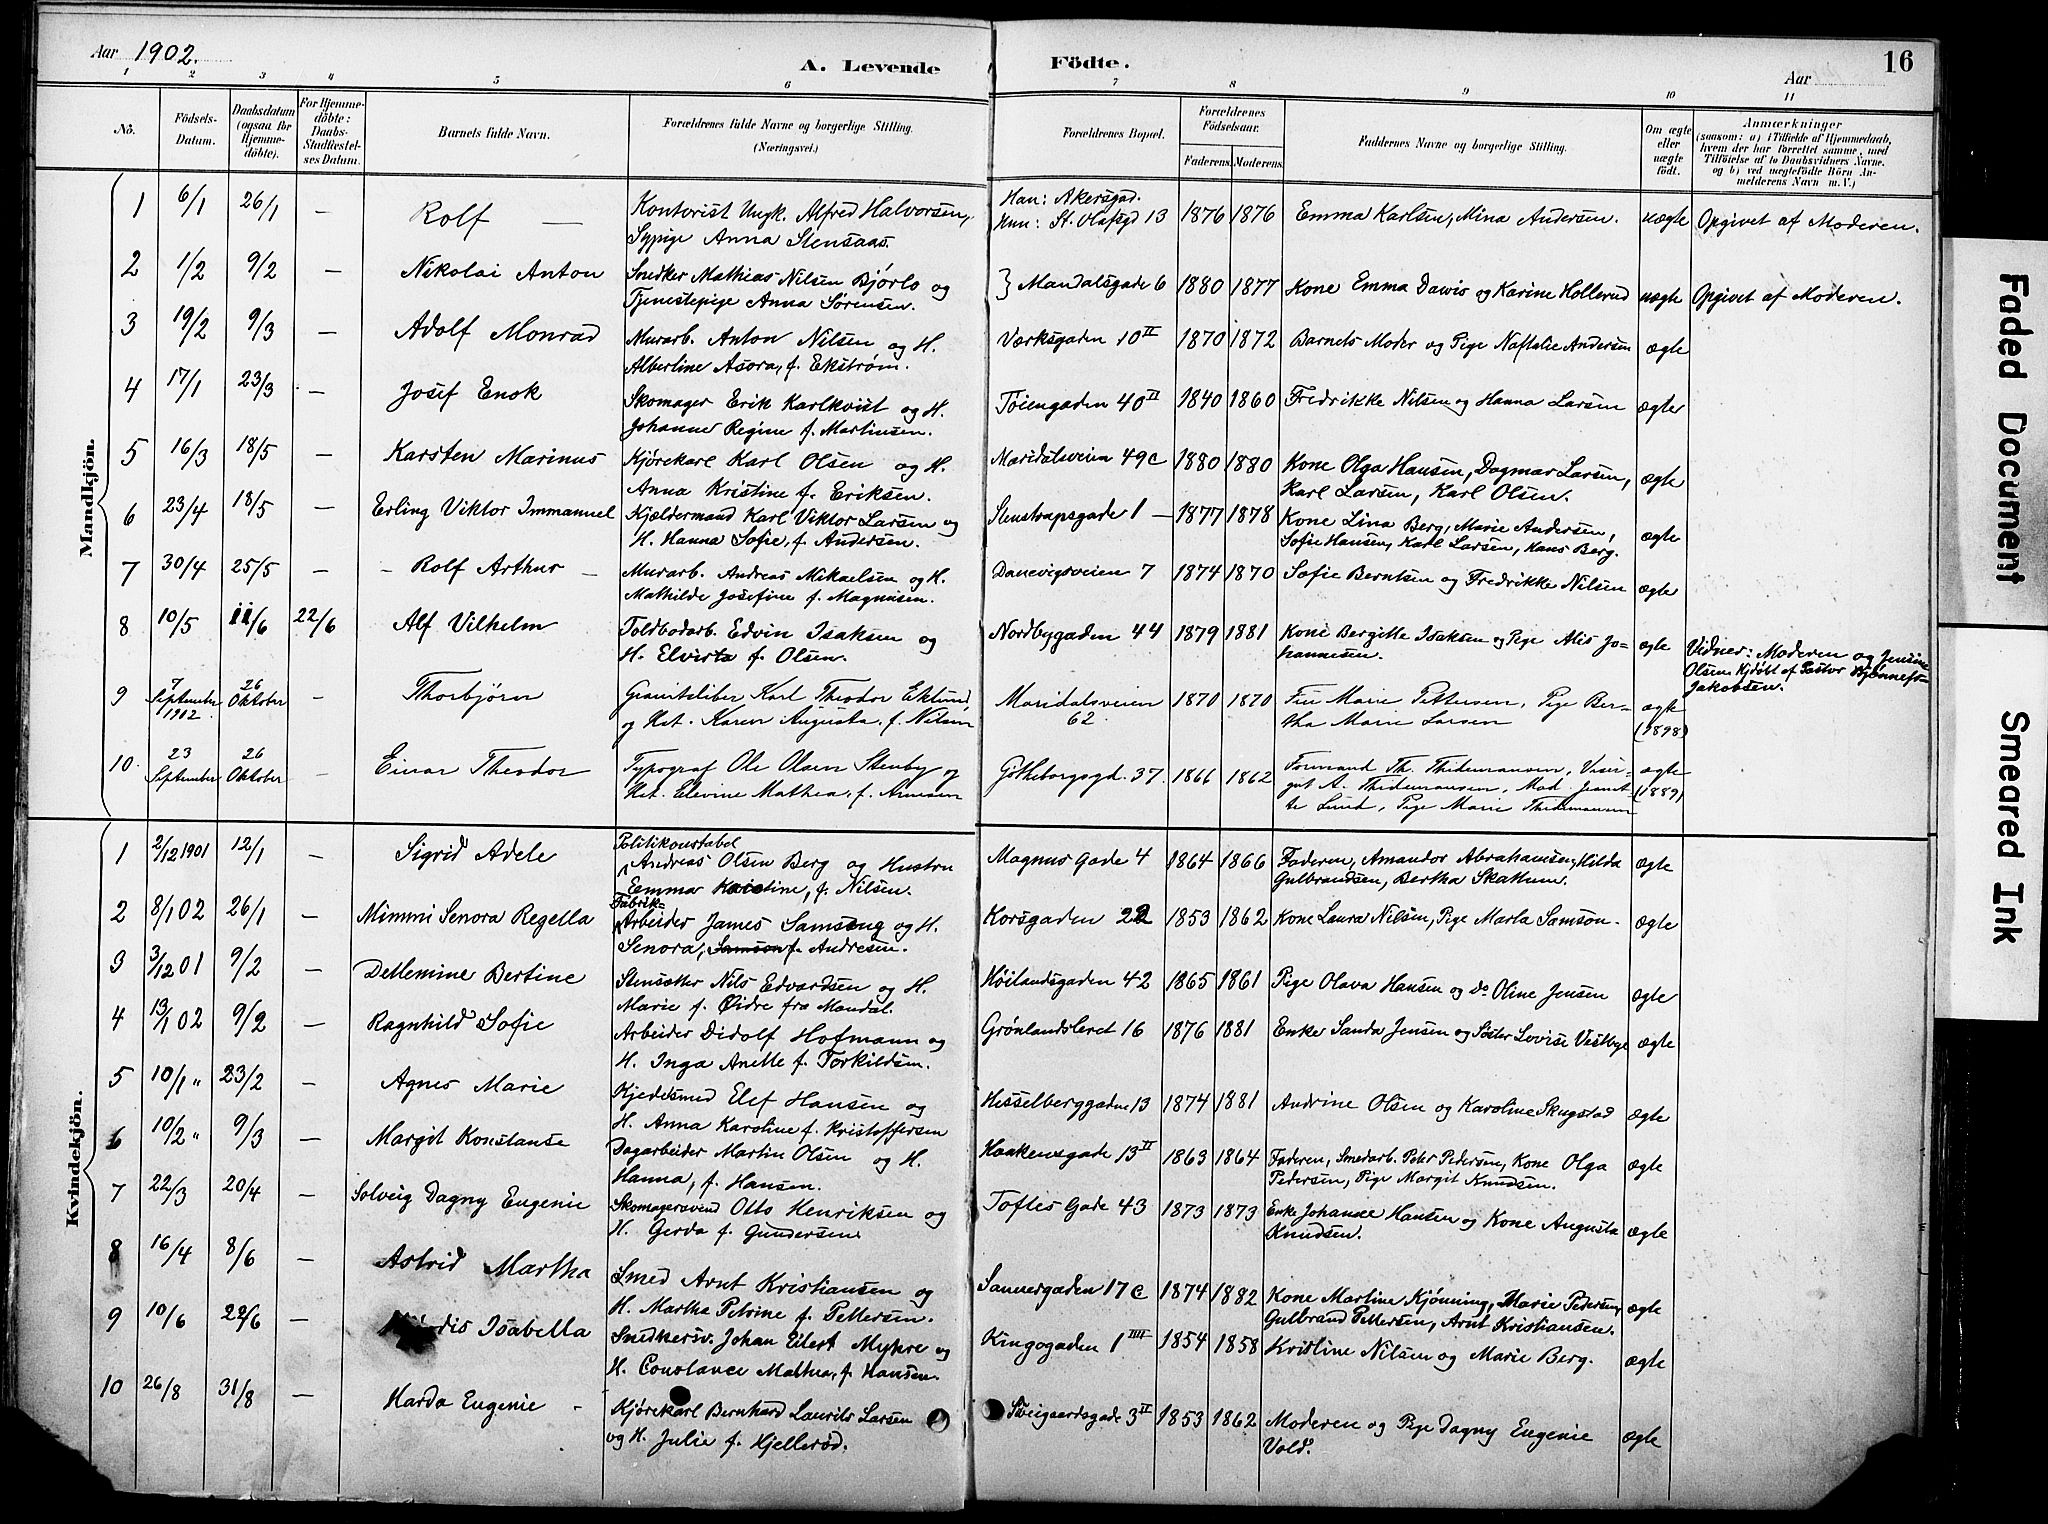 Aar 1902. A. Levende Födte. Aar 16
1 2 3 4 5 6 7 8 9 10 11
No. Födsels-Datum. Daabsdatum (ogsaa for Hjemmedöbte). For Hjemmedöbte: Daabs-Stadfæstelses Datum. Barnets fulde Navn. Forældrenes fulde Navne og borgerlige Stilling. (Næringsvei.) Forældrenes Bopæl. Forældrenes Födselsaar. Faderens. Moderens. Faddernes Navne og borgerlige Stilling. Om ægte eller uægte födt. Anmærkninger (saasom: a) i Tilfælde af Hjemmedaab, hvem der har forrettet samme, med Tilföielse af to Daabsvidners Navne. og b) ved uægtefödte Börn Anmelderens Navn m. V.)
Mandkjön.
1 6/1 26/1 — Rolf — Kontorist Ungk. Alfred Halvorsen, Han: Akersgad. 1876 1876 Emma Karlsen, Mina Andersen. uægte Opgivet af Moderen.
Sypige Anna Stensaas. Hun: St. Olafsgd 13
2 1/2 9/2 — Nikolai Anton Snedker Mathias Nilsen Bjørlo og } Mandalsgade 6 1880 1877 Kone Emma Dawis og Karine Hollerud uægte Opgivet af Moderen.
Tjenestepige Anna Sørensen.
3 19/2 9/3 — Adolf Monrad Murarb. Anton Nilsen og H. Værksgaden 10 II 1870 1872 Barnets Moder og Pige Naftalie Andersen ægte
Albertine Asora, f. Ekstrøm.
4 17/1 23/3 — Josef Enok Skomager Erik Karlkvist og H. Tøiengaden 40 II 1840 1860 Fredrikke Nilsen og Hanna Larsen ægte
Johanne Regine f. Martinsen.
5 16/3 18/5 — Karsten Marinus Kjørekarl Karl Olsen og H. Maridalsveien 49c 1880 1880 Kone Olga Hansen, Dagmar Larsen, ægte
Anna Kristine f. Eriksen. Karl Larsen, Karl Olsen.
6 23/4 18/5 — Erling Viktor Immanuel Kjældermand Karl Viktor Larsen og Stenstrupsgade 1 — 1877 1878 Kone Lina Berg, Marie Andersen, ægte
H. Hanna Sofie, f. Andersen. Sofie Hansen, Karl Larsen, Hans Berg.
7 30/4 25/5 — - Rolf Arthur — Murarb. Andreas Mikaelsen og H. Danevigsveien 7 1874 1870 Sofie Berntsen og Fredrikke Nilsen ægte
Mathilde Josefine f. Magnusen.
8 10/5 11/6 22/6 Alf Vilhelm Toldbodarb. Edvin Isaksen og Nordbygaden 44 1879 1881 Kone Bergitte Isaksen og Pige Alis Jo- ægte Vidner: Moderen og Jensine
H. Elvirta f. Olsen. hannesen. Olsen. Hjdøbt af Pastor
Jakobsen.
9 7 September 1902 26 Oktober — Thorbjørn Granitsliber Karl Theodor Eklund, Maridalsveien 1870 1870 Fru Marie Pettersen, Pige Ber- ægte
og Hst. Karen Augusta, f. Nilsen 62 tha Marie Larsen (1898)
10 23 September 26 Oktober — Einar Theodor Typograf Ole Olsen Stenby og Gøtheborgsgd. 37. 1866 1862 Formand Th. Thidemansen, Visir- ægte
Hst. Elevine Mathea, f. Arnesen gut A. Thidemansen, Mad. Jenset- (1889)
te Lund, Pige Marie Thidemansen
Kvindekjön.
1 2/12 1901 12/1 — Sigrid Adele Politikonstabel Magnus Gade 4 1864 1866 Faderen, Amandor Abrahamsen, Hilda ægte
Andreas Olsen Berg og Hustru Gulbrandsen, Bertha Skattum.
Emma Kristine, f. Nilsen.
2 8/1 02 26/1 — Mimmi Senora Regella Fabrik- Korsgaden 22 1853 1862 Kone Laura Nilsen, Pige Marta Samson. ægte
Arbeider James Samsong og H.
Senora, Samson f. Andresen.
3 3/12 01 9/2 — Detlemine Bertine Stensætter Nils Edvardsen og H. Høilandsgaden 42 1865 1861 Pige Olava Hansen og do Oline Jensen ægte
Marie f. Øidre fra Mandal.
4 13/1 02 9/2 — Ragnhild Sofie Arbeider Didolf Hofmann og Grønlandsleret 16 1876 1881 Enke Sanda Jensen og Søster Lovise Vestbye ægte
H. Inga Anette f. Torkildsen.
5 10/1 " 23/2 — Agnes Marie Kjedelsmed Elef Hansen og Hesselberggaden 13 1874 1881 Andrine Olsen og Karoline Skugstad ægte
H. Anna Karoline f. Kristoffersen
6 10/2 " 9/3 — Margit Konstanse Dagarbeider Martin Olsen og H. Haakensgade 13 II 1863 1864 Faderen, Smedarb. Peter Pedersen, Kone Olga ægte
Hanna, f. Hansen. Pedersen, Pige Margit Knudsen.
7 22/3 20/4 — Solveig Dagny Eugenie Skomagersvend Otto Henriksen og Toftes Gade 43 1873 1873 Enke Johanne Hansen og Kone Augusta ægte
H. Gerda f. Gundersen. Knudsen.
8 16/4 8/6 — Astrid Martha Smed Arnt Kristiansen og Sannergaden 17 c 1874 1882 Kone Martine Kjønning, Marie Pedersen, ægte
H. Martha Petrine f. Pettersen. Gulbrand Pettersen, Arnt Kristiansen.
9 10/6 22/6 — Isabella Snedkersv. Johan Eilert Myhre og Kingogaden 1 IIII 1854 1858 Kristine Nilsen og Marie Berg. ægte
H. Constance Mathea, f. Hansen.
10 26/8 31/8 — Harda Eugenie - Kjørekarl Bernhard Laurits Larsen Sveigaardsgade 3 II 1853 1862 Moderen og Pige Dagny Eugenie ægte
og H. Julie f. Hjellerød. Vold.
Faded Document
Smeared Ink